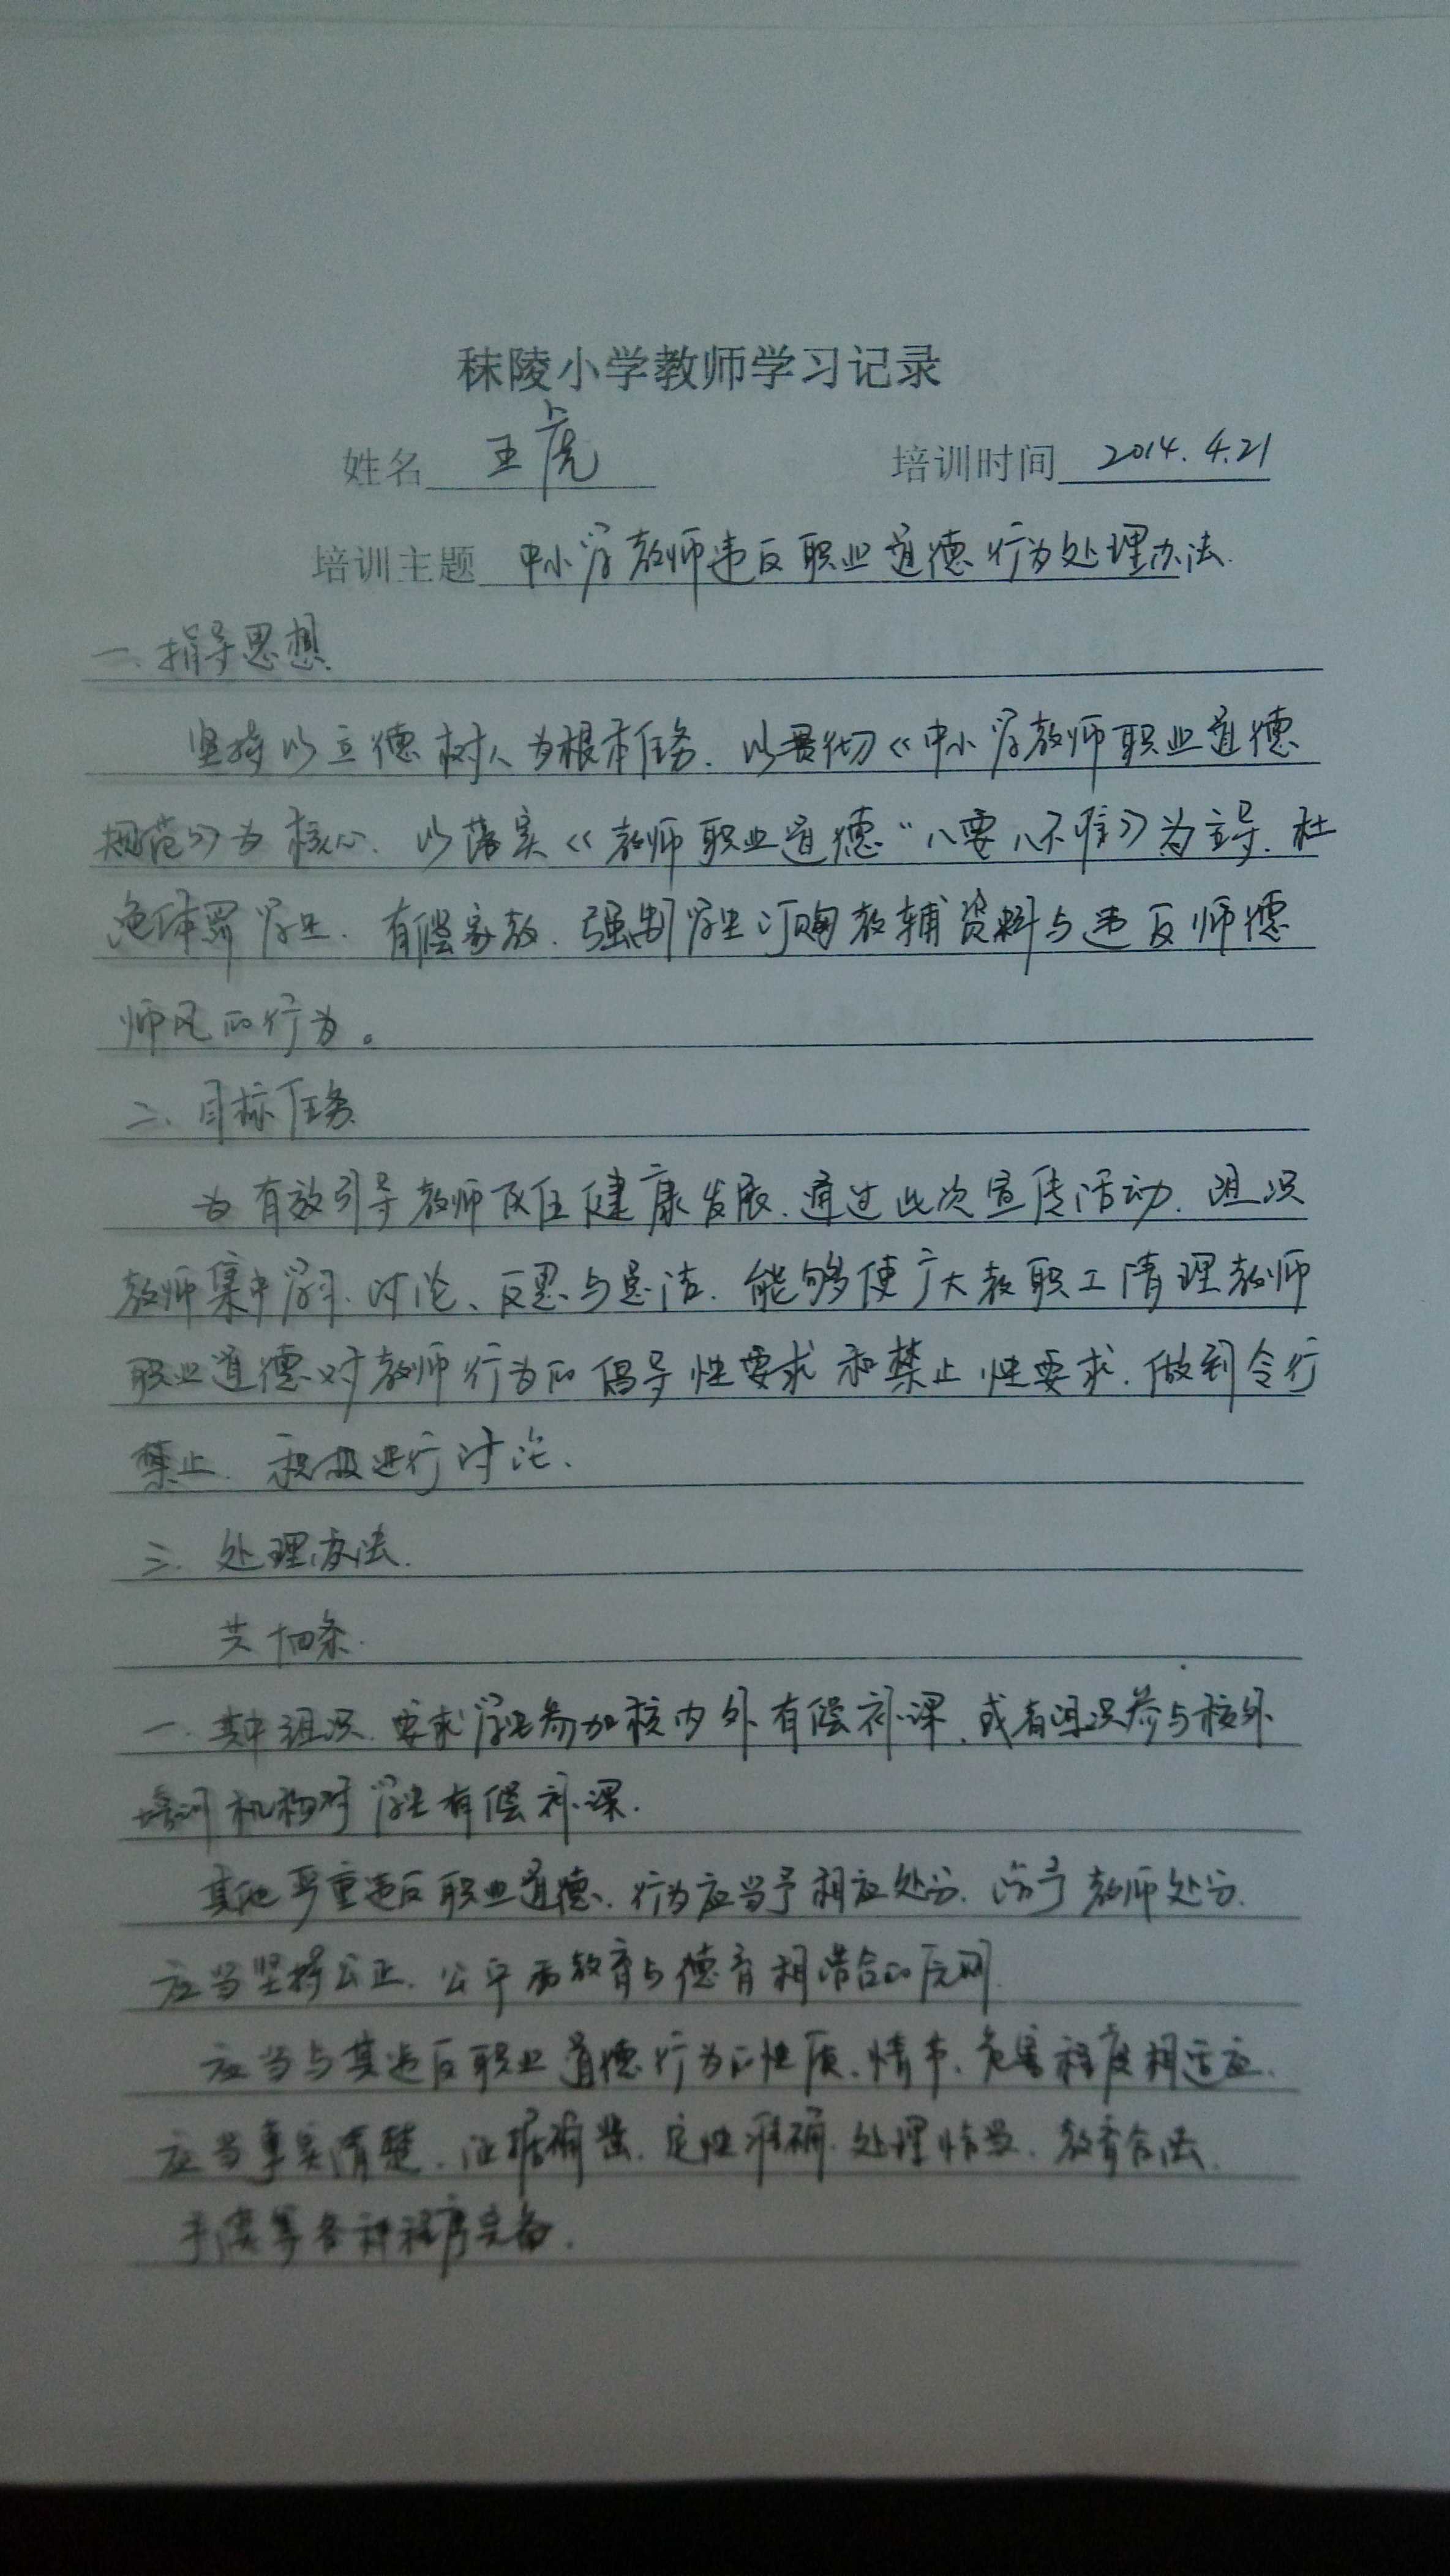 秣陵小学教师学习记录
姓名 王虎 培训时间 2014.4.21
培训主题 中小学教师违反职业道德行为处理办法.
一、指导思想.
坚持以立德树人为根本任务. 以贯彻《中小学教师职业道德
规范》为核心. 以落实《教师职业道德“八要八不准》为主导. 杜
绝体罚学生. 有偿家教. 强制学生订购教辅资料与违反师德
师风的行为。
二、目标任务
为有效引导教师队伍健康发展. 通过此次宣传活动. 组织
教师集中学习、讨论、反思与总结. 能够使广大教职工清理教师
职业道德对教师行为的倡导性要求和禁止性要求. 做到令行
禁止. 积极进行讨论.
三. 处理办法.
共十四条.
一. 其中组织. 要求学生参加校内外有偿补课. 或者组织参与校外
培训机构对学生有偿补课.
其他严重违反职业道德. 行为应当予相应处分. 给予教师处分.
应当坚持公正. 公平 教育与德育相结合的原则.
应当与其违反职业道德行为的性质. 情节. 危害程度相适应.
应当事实清楚. 证据确凿. 定性准确. 处理恰当. 教育合法.
手续等各种程序完备.